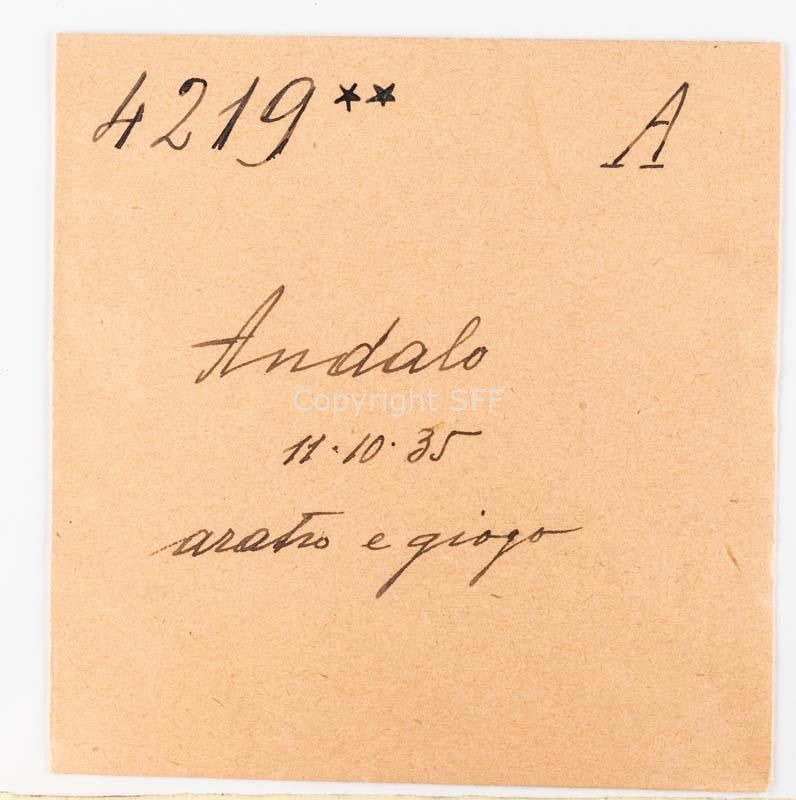 4219** A
Andalo
Copyright SFF
11·10·35
aratro e giogo